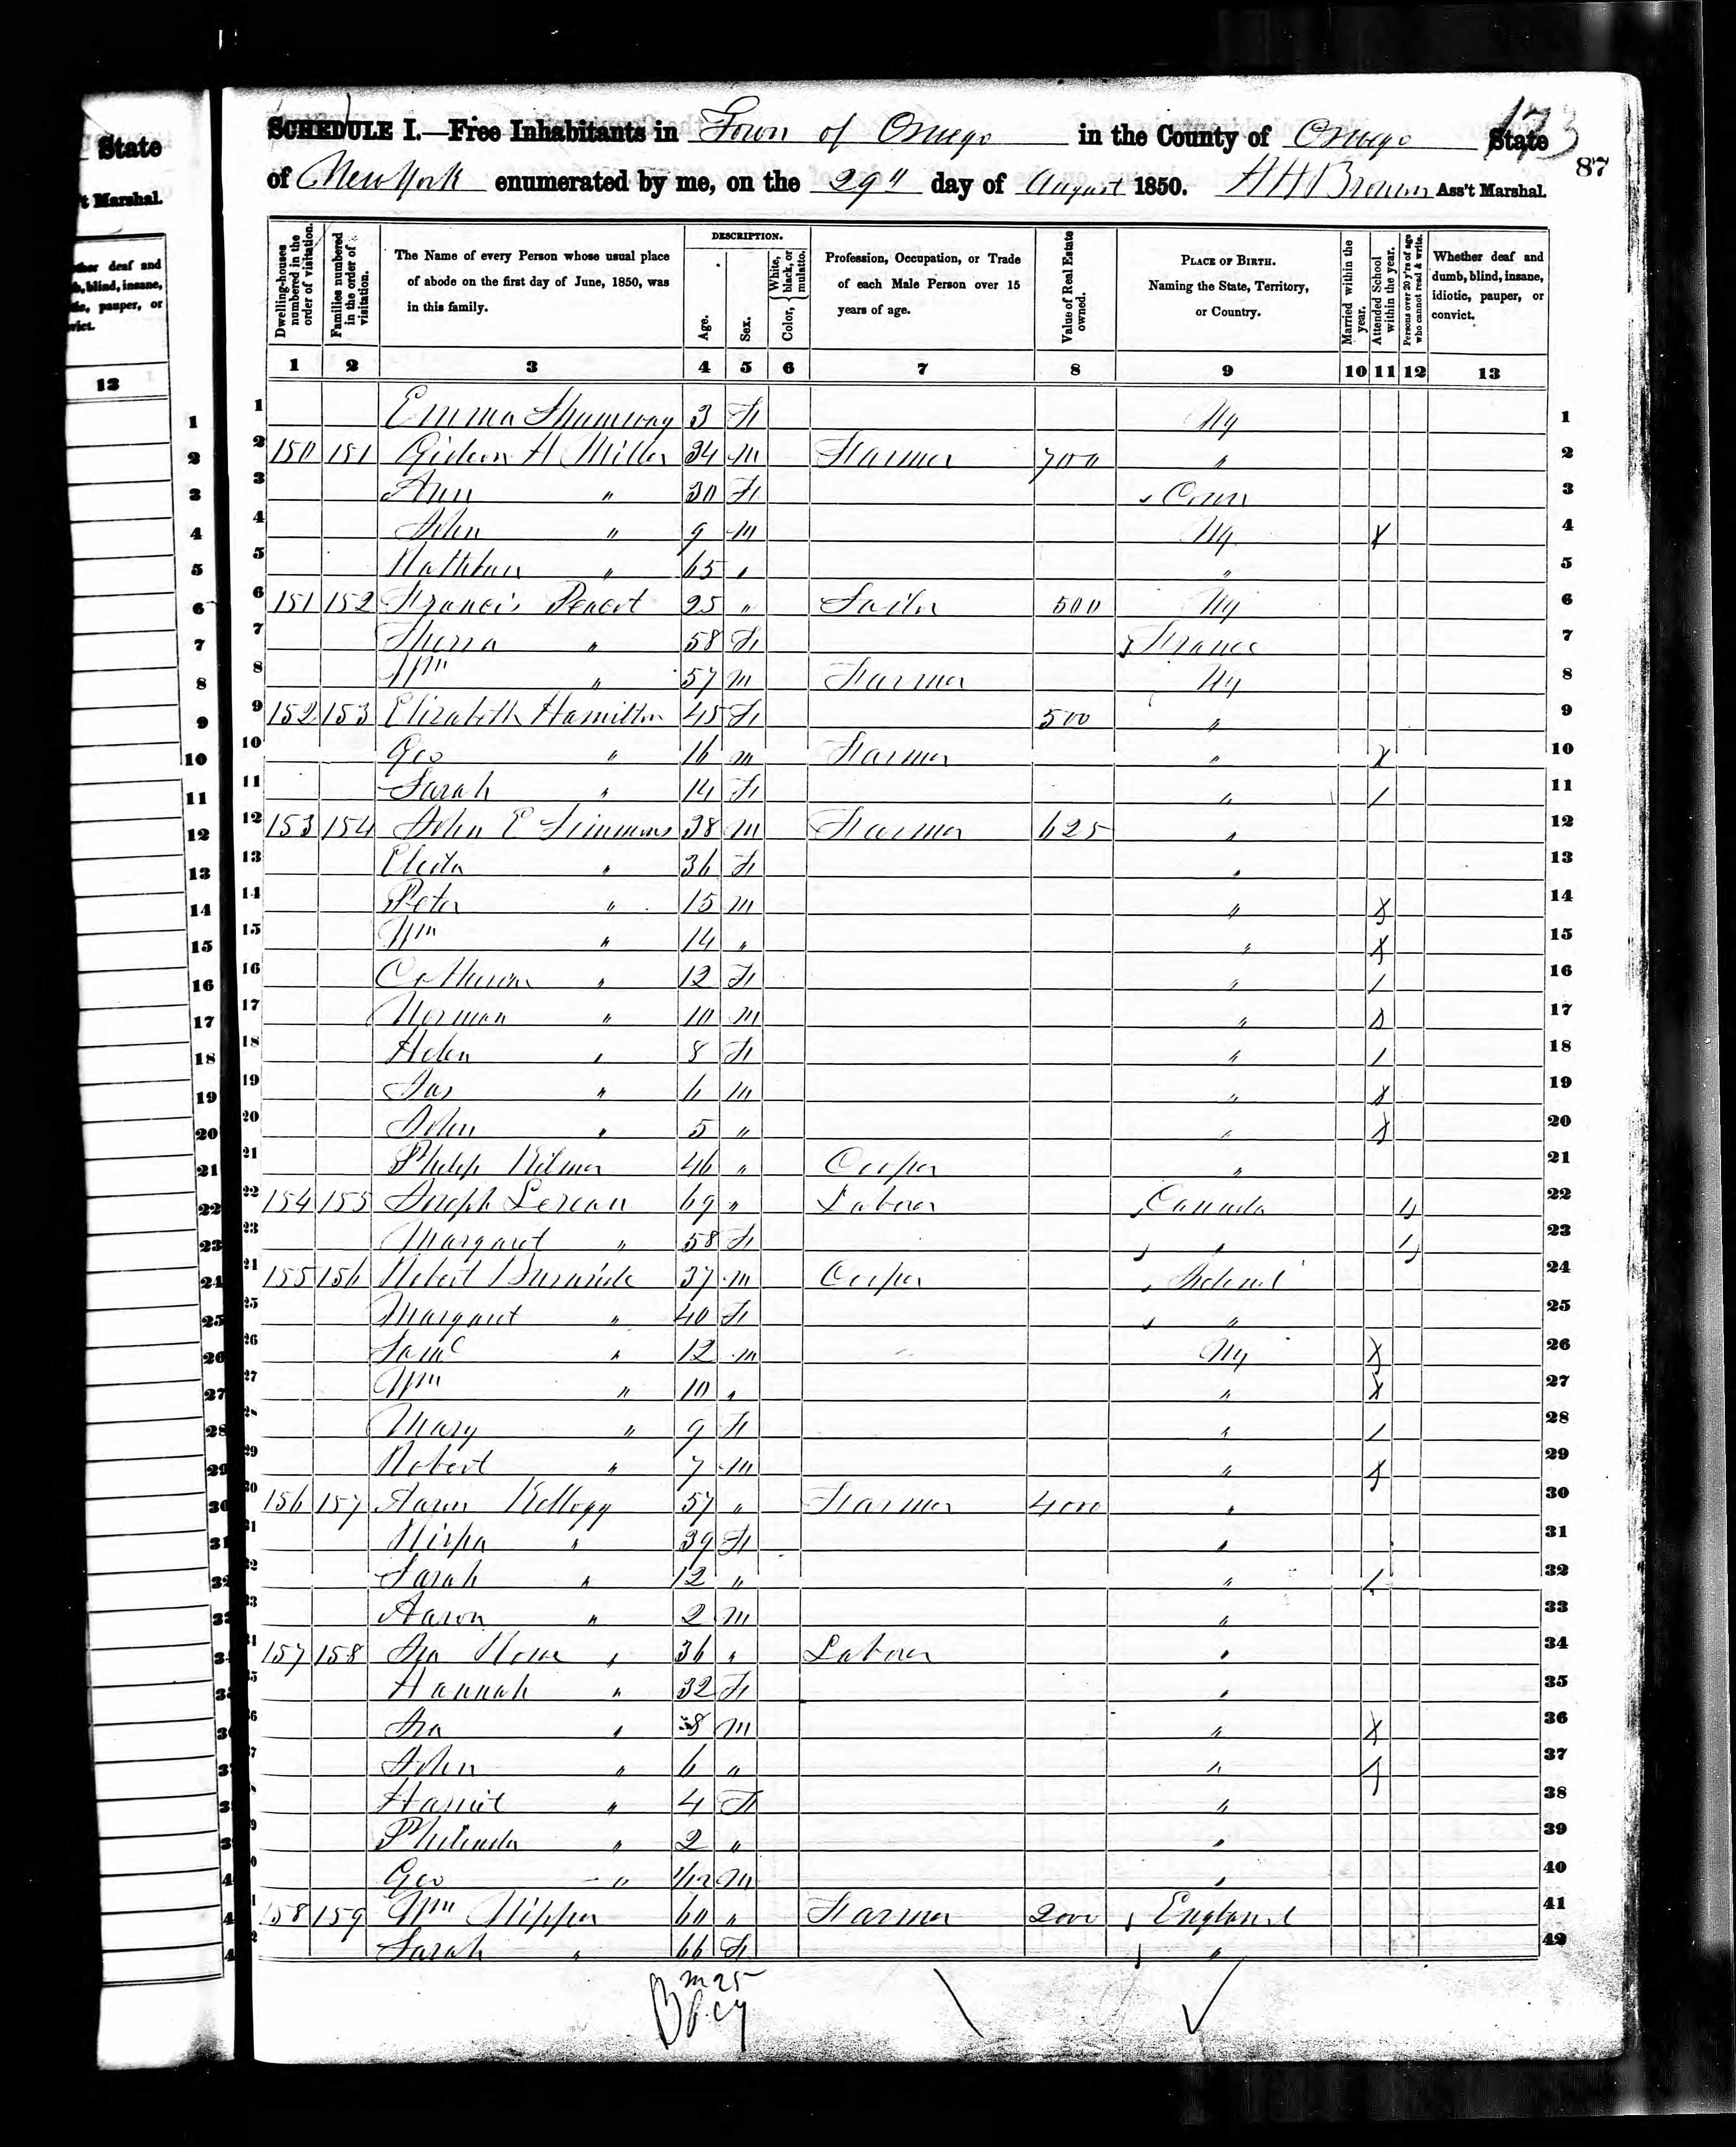 State
't Marshal.
ther deaf and
b, blind, insane,
tic, pauper, or
vict.
13
173
87
SCHEDULE I.—Free Inhabitants in Town of Oswego in the County of Oswego State
of New York enumerated by me, on the 29" day of August 1850. H H Brown Ass't Marshal.
Dwelling-houses numbered in the order of visitation.
Families numbered in the order of visitation.
The Name of every Person whose usual place of abode on the first day of June, 1850, was in this family.
DESCRIPTION.
Age.
Sex.
Color, { White, black, or mulatto.
Profession, Occupation, or Trade of each Male Person over 15 years of age.
Value of Real Estate owned.
PLACE OF BIRTH. Naming the State, Territory, or Country.
Married within the year.
Attended School within the year.
Persons over 20 y'rs of age who cannot read & write.
Whether deaf and dumb, blind, insane, idiotic, pauper, or convict.
1 2 3 4 5 6 7 8 9 10 11 12 13
1 Emma Shumway 3 F Ny 1
2 150 151 Gideon H Miller 34 M Farmer 700 " 2
3 Ann " 30 F Conn 3
4 John " 9 M Ny X 4
5 Nathan " 65 " " 5
6 151 152 Francis 25 " Sailor 500 Ny 6
7 " 58 F France 7
8 Wm " 57 M Farmer Ny 8
9 152 153 Elizabeth Hamilton 45 F 500 " 9
10 Geo " 16 M Farmer " X 10
11 Sarah " 14 F " / 11
12 153 154 John E Simmons 38 M Farmer 625 " 12
13 Electa " 36 F " 13
14 Peter " 15 M " X 14
15 Wm " 14 " " X 15
16 Catharine " 12 F " / 16
17 Norman " 10 M " X 17
18 Helen " 8 F " / 18
19 Jas " 6 M " X 19
20 John " 5 " " X 20
21 Philip Kilmer 46 " Cooper " 21
22 154 155 Joseph 69 " Laborer Canada 22
23 Margaret " 58 F " 23
24 155 156 Robert Burnside 37 M Cooper Ireland 24
25 Margaret " 40 F " 25
26 Saml " 12 M Ny X 26
27 Wm " 10 " " X 27
28 Mary " 9 F " / 28
29 Robert " 7 M " X 29
30 156 157 Aaron Kellogg 57 " Farmer 4000 " 30
31 " 39 F " 31
32 Sarah " 12 " " / 32
33 Aaron " 2 M " 33
34 157 158 Ira " 36 " Laborer " 34
35 Hannah " 32 F " 35
36 Ira " 8 M " X 36
37 John " 6 " " X 37
38 Harriet " 4 F " 38
39 Philinda " 2 " " 39
40 Geo " 1/12 M " 40
41 158 159 Wm 60 " Farmer 2000 England 41
42 Sarah " 66 F " 42
m 25